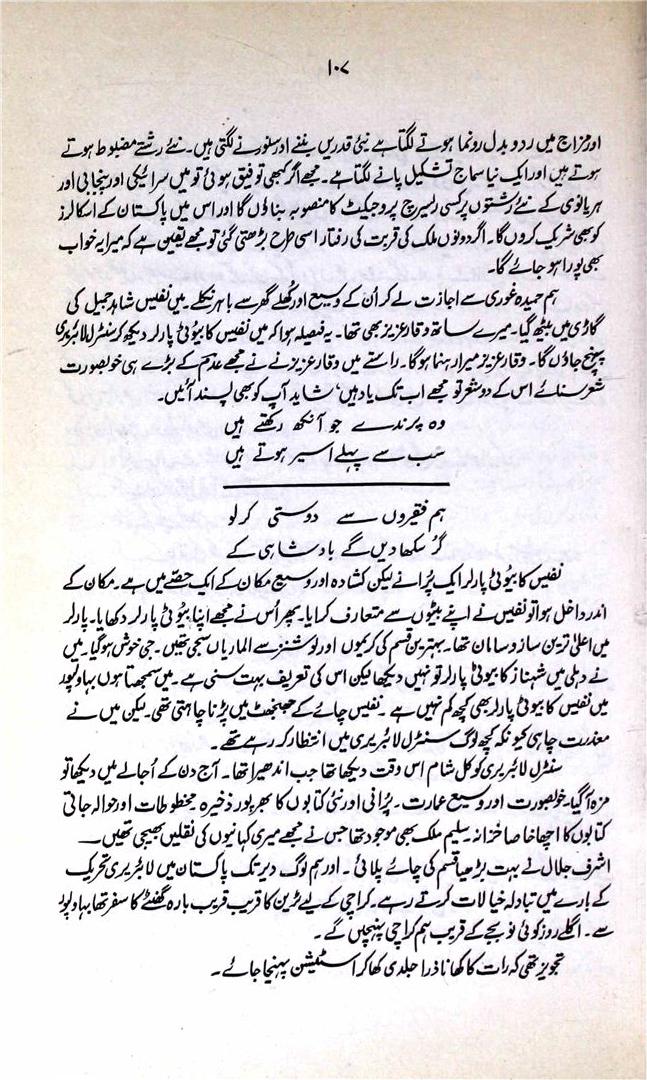 ۱۰۷
اور مزاج میں ردو بدل رونما ہونے لگتا ہے نیئ قدریں بننے اور سنورنے لگتی ہیں۔ نئے رشتے مضبوط ہوتے
ہوتے ہیں اور ایک نیا سماج تشکیل پانے لگتا ہے۔ مجھے اگر کبھی توفیق ہوئی تو میں سرائیکی اور پنجابی اور
ہریانوی کے نئے رشتوں پر کسی ریسرچ پروجیکٹ کا منصوبہ بناؤں گا اور اس میں پاکستان کے اسکالرز
کو بھی شریک کروں گا۔ اگر دونوں ملک کی قربت کی رفتار اسی طرح بڑھتی گئی تو مجھے یقین ہے کہ میرا یہ خواب
بھی پورا ہو جائے گا۔
ہم حمیدہ غوری سے اجازت لے کر ان کے وسیع اور کھلے گھر سے باہر نکلے۔ میں نفیس شاہد جمیل کی
گاڑی میں بیٹھ گیا۔ میرے ساتھ وقار عزیز بھی تھا۔ یہ فیصلہ ہوا کہ میں نفیس کا بیوٹی پارلر دیکھ کر سنٹرل لائبریری
پہونچ جاؤں گا۔ وقار عزیز میرا رہنما ہوگا۔ راستے میں وقار عزیز نے نے مجھے عدم کے بڑے ہی خوبصورت
شعر سنائے اس کے دو شعر تو مجھے اب تک یاد ہیں، شاید آپ کو بھی پسند آئیں۔
وہ پرندے جو آنکھ رکھتے ہیں
سب سے پہلے اسیر ہوتے ہیں
ہم فقیروں سے دوستی کر لو
گُر سکھا دیں گے بادشاہی کے
نفیس کا بیوٹی پارلر ایک پُرانے لیکن کشادہ اور وسیع مکان کے ایک حصّے میں ہے۔ مکان کے
اندر داخل ہوا تو نفیس نے اپنے بیٹوں سے متعارف کرایا۔ پھر اُس نے مجھے اپنا بیوٹی پارلر دکھایا۔ پارلر
میں اعلیٰ ترین ساز و سامان تھا۔ بہترین قسم کی کریموں اور لوشنز سے الماریاں سجی تھیں۔ جی خوش ہو گیا۔ میں
نے دہلی میں شہناز کا بیوٹی پارلر تو نہیں دیکھا لیکن اس کی تعریف بہت سنی ہے۔ میں سمجھتا ہوں بہاولپور
میں نفیس کا بیوٹی پارلر بھی کچھ کم نہیں ہے۔ نفیس چائے کے جھنجھٹ میں پڑنا چاہتی تھی۔ لیکن میں نے
معذرت چاہی کیونکہ کچھ لوگ سنٹرل لائبریری میں انتظار کر رہے تھے۔
سنٹرل لائبریری کو کل شام اس وقت دیکھا تھا جب اندھیرا تھا۔ آج دن کے اُجالے میں دیکھا تو
مزہ آگیا۔ خوبصورت اور وسیع عمارت۔ پُرانی اور نئی کتابوں کا بھرپور ذخیرہ مخطوطات اور حوالہ جاتی
کتابوں کا اچھا خاصا خزانہ سلیم ملک بھی موجود تھا جس نے مجھے میری کہانیوں کی نقلیں بھیجی تھیں۔
اشرف جلال نے بہت بڑھیا قسم کی چائے پلائی۔ اور ہم لوگ دیر تک پاکستان میں لائبریری تحریک
کے بارے میں تبادلہ خیالات کرتے رہے۔ کراچی کے لیے ٹرین کا قریب قریب بارہ گھنٹے کا سفر تھا بہاولپور
سے۔ اگلے روز کوئی نو بجے کے قریب ہم کراچی پہنچیں گے۔
تجویز تھی کہ رات کا کھانا ذرا جلدی کھا کر اسٹیشن پہنچا جائے۔